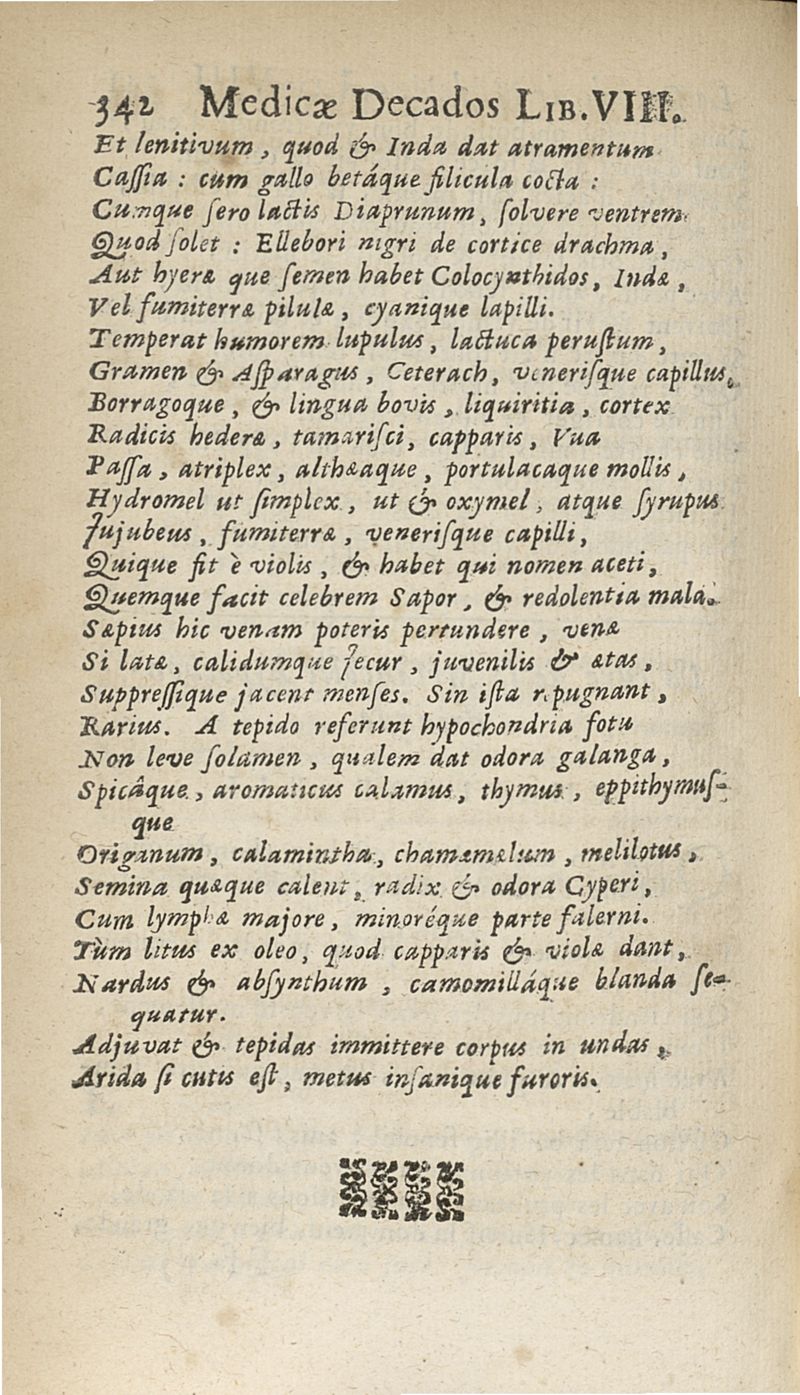 342 Medicæ Decados LIB. VIII.
Et lenitivum, quod & Inda dat atramentum
Caſſia : cum gallo betáque filicula cocta :
Cumque ſero lactis Diaprunum, ſolvere ventrem
Quod ſolet : Ellebori nigri de cortice drachma,
Aut hyeræ que ſemen habet Colocynthidos, Indæ,
Vel fumiterræ pilulæ, cyanique lapilli.
Temperat humorem lupulus, lactuca peruſtum,
Gramen & Aſparagus, Ceterach, veneriſque capillus,
Borragoque, & lingua bovis, liquiritia, cortex
Radicis hederæ, tamariſci, capparis, Vua
Paſſa, atriplex, althæaque, portulacaque mollis,
Hydromel ut ſimplex, ut & oxymel, atque ſyrupus
Jujubeus, fumiterræ, veneriſque capilli,
Quique fit è violis, & habet qui nomen aceti,
Quemque facit celebrem Sapor, & redolentia mala.
Sæpius hic venam poteris pertundere, venæ
Si latæ, calidumque Jecur, juvenilis & ætas,
Suppreſſique jacent menſes. Sin iſta repugnant,
Rarius. A tepido referunt hypochondria fotu
Non leve ſolamen, qualem dat odora galanga,
Spicâque, aromaticus calamus, thymus, eppithymuſ-
que
Origanum, calamintha, chamæmælum, melilotus,
Semina quæque calent, radix & odora Cyperi,
Cum lymphæ majore, minoréque parte falerni.
Tùm litus ex oleo, quod capparis & violæ dant,
Nardus & abſynthum, camomilláque blanda ſe-
quatur.
Adjuvat & tepidas immittere corpus in undas,
Arida ſi cutis eſt, metus inſanique furoris.